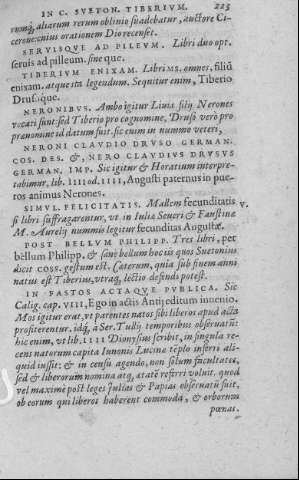 IN C. SVETON. TIBERIVM. 225
rumq́, aliarum rerum obliuio suadebatur, auctore Ci-
cerone: cuius orationem Dio recenset.
SERVISQVE AD PILEVM. Libri duo opt.
seruis ad pilleum. sine que.
TIBERIVM ENIXAM. Libri MS. omnes, filiũ
enixam. atque ita legendum. Sequitur enim, Tiberio
Drusoque.
NERONIBVS. Ambo igitur Liuiæ filij Nerones
vocati sunt: sed Tiberio pro cognomine, Druso verò pro
prænomine id datum fuit. sic enim in nummo veteri,
NERONI CLAVDIO DRVSO GERMAN.
COS. DES. &, NERO CLAVDIVS DRVSVS
GERMAN. IMP. Sic igitur & Horatium interpre-
tabimur, lib. IIII od. IIII, Augusti paternus in pue-
ros animus Nerones.
SIMVL FELICITATIS. Mallem fecunditatis v.
si libri suffragarentur, vt in Iuliæ Seueri & Faustinæ
M. Aurelij nummis legitur fecunditas Augustæ.
POST BELLVM PHILIPP. Tres libri, per
bellum Philipp. & sanè bellum hoc iis quos Suetonius
dicit coss. gestum est. Cæterùm, quia sub finem anni
natus est Tiberius, vtraq́; lectio defendi potest.
IN FASTOS ACTAQVE PVBLICA. Sic
Calig. cap. VIII, Ego in actis Antij editum inuenio.
Mos igitur erat, vt parentes natos sibi liberos apud acta
profiterentur. idq́; à Ser. Tullij temporibus obseruatũ:
hic enim, vt lib. IIII Dionysius scribit, in singula re-
cens natorum capita Iunonis Lucinæ tẽplo inferri ali-
quid iussit: & in censu agendo, non solùm facultates,
sed & liberorum nomina atq́; ætatẽ referri voluit. quod
vel maximè post leges Iulias & Papias obseruatũ fuit,
ob eorum qui liberos haberent commoda, & orborum
pœnas.